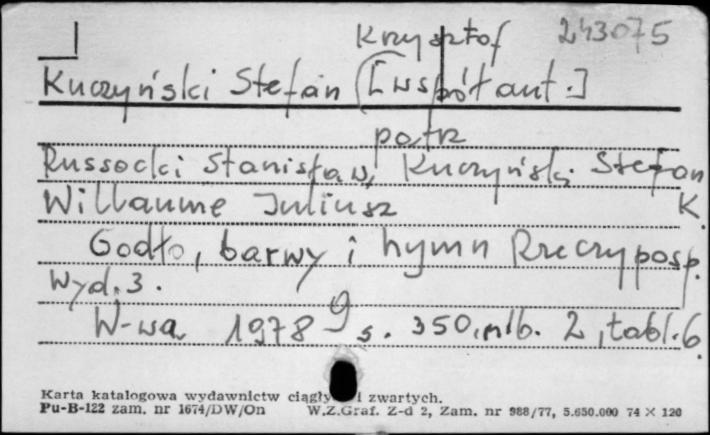 Krzysztof 243075
Kuczyński Stefan [współaut.]
patrz
Russocki Stanisław, Kuczyński Stefan K.
Willaume Juliusz
Godło, barwy i hymn Rzeczyposp.
Wyd. 3.
W-wa 1978 s. 350, nlb. 2, tabl. 6.
Karta katalogowa wydawnictw ciągły i zwartych.
Pu-B-122 zam. nr 1674/DW/On W.Z.Graf. Z-d 2, Zam. nr 988/77, 5.650.000 74 × 120